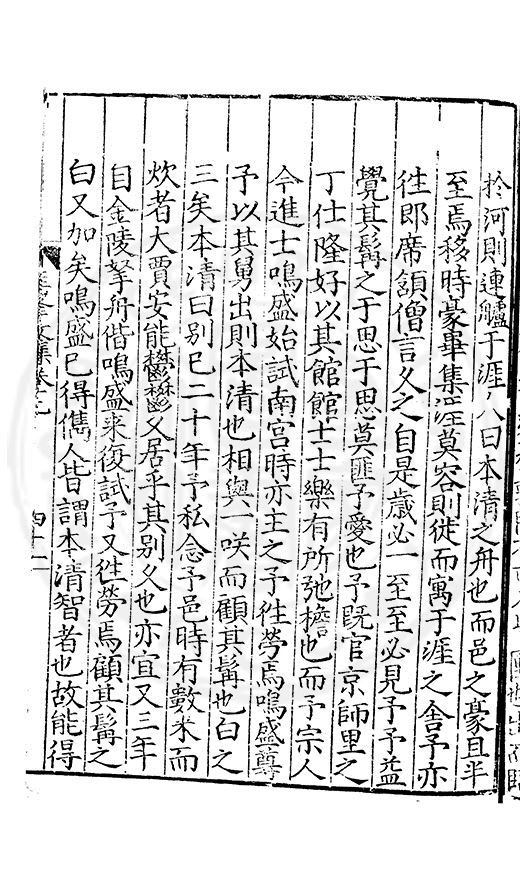 於河則連艫于涯人曰本清之舟也而邑之豪且半
至焉移時豪畢集涯莫容則徙而寓于涯之舎予亦
徃即席頷僧言久之自是歲必一至至必見予予益
覺其髯之于思于思莫匪予愛也予既官京師里之
丁仕隆好以其館館士士樂有所弛檐也而予宗人
今進士鳴盛始試南宫時亦主之予徃勞焉鳴盛尊
予以其舅出則本清也相與一咲而顧其髯也白之
三矣本清曰别已二十年予私念予邑時有數米而
炊者大賈安能鬱鬱久居乎其别久也亦宜又三年
自金陵拏舟偕鳴盛来復試予又徃勞焉顧其髯之
白又加矣鳴盛已得雋人皆謂本清智者也故能得
四十二